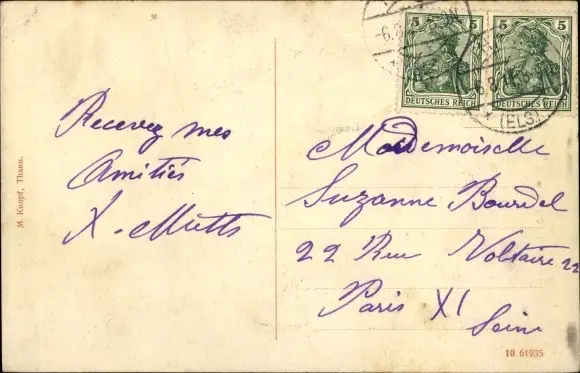 5 5 5 5
DEUTSCHES REICH DEUTSCHES REICH
(ELS)
Recevez mes
Amitiés
X. Mutts
Mademoiselle
Suzanne Bourdel
22 Rue Voltaire 22
Paris XI
Seine
M. Knopf, Thann.
10 61935